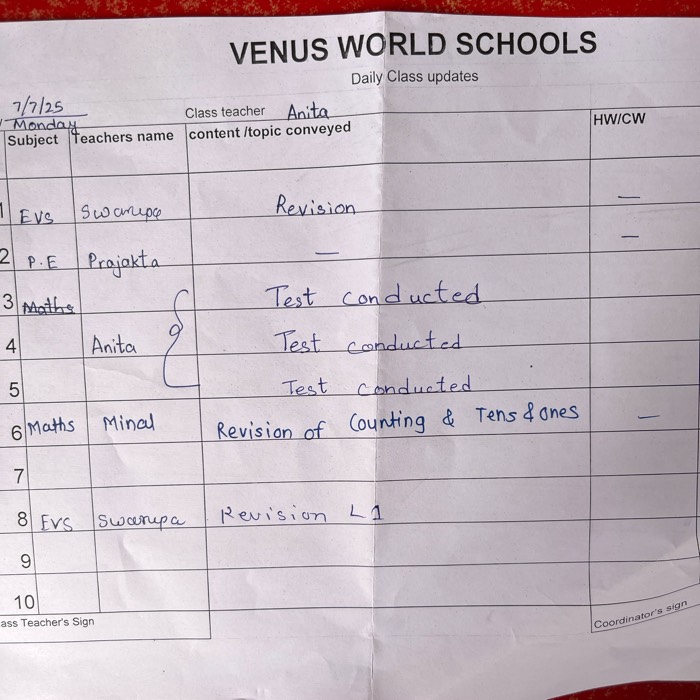 VENUS WORLD SCHOOLS
Daily Class updates
7/7/25
Monday
Class teacher Anita
Subject Teachers name content /topic conveyed HW/CW
1 EVS Swarupa Revision —
2 P.E Prajakta — —
3 Maths Test conducted
4 Anita Test conducted
5 Test conducted
6 Maths Minal Revision of Counting & Tens & ones —
7
8 EVS Swarupa Revision L1
9
10
ass Teacher's Sign
Coordinator's sign